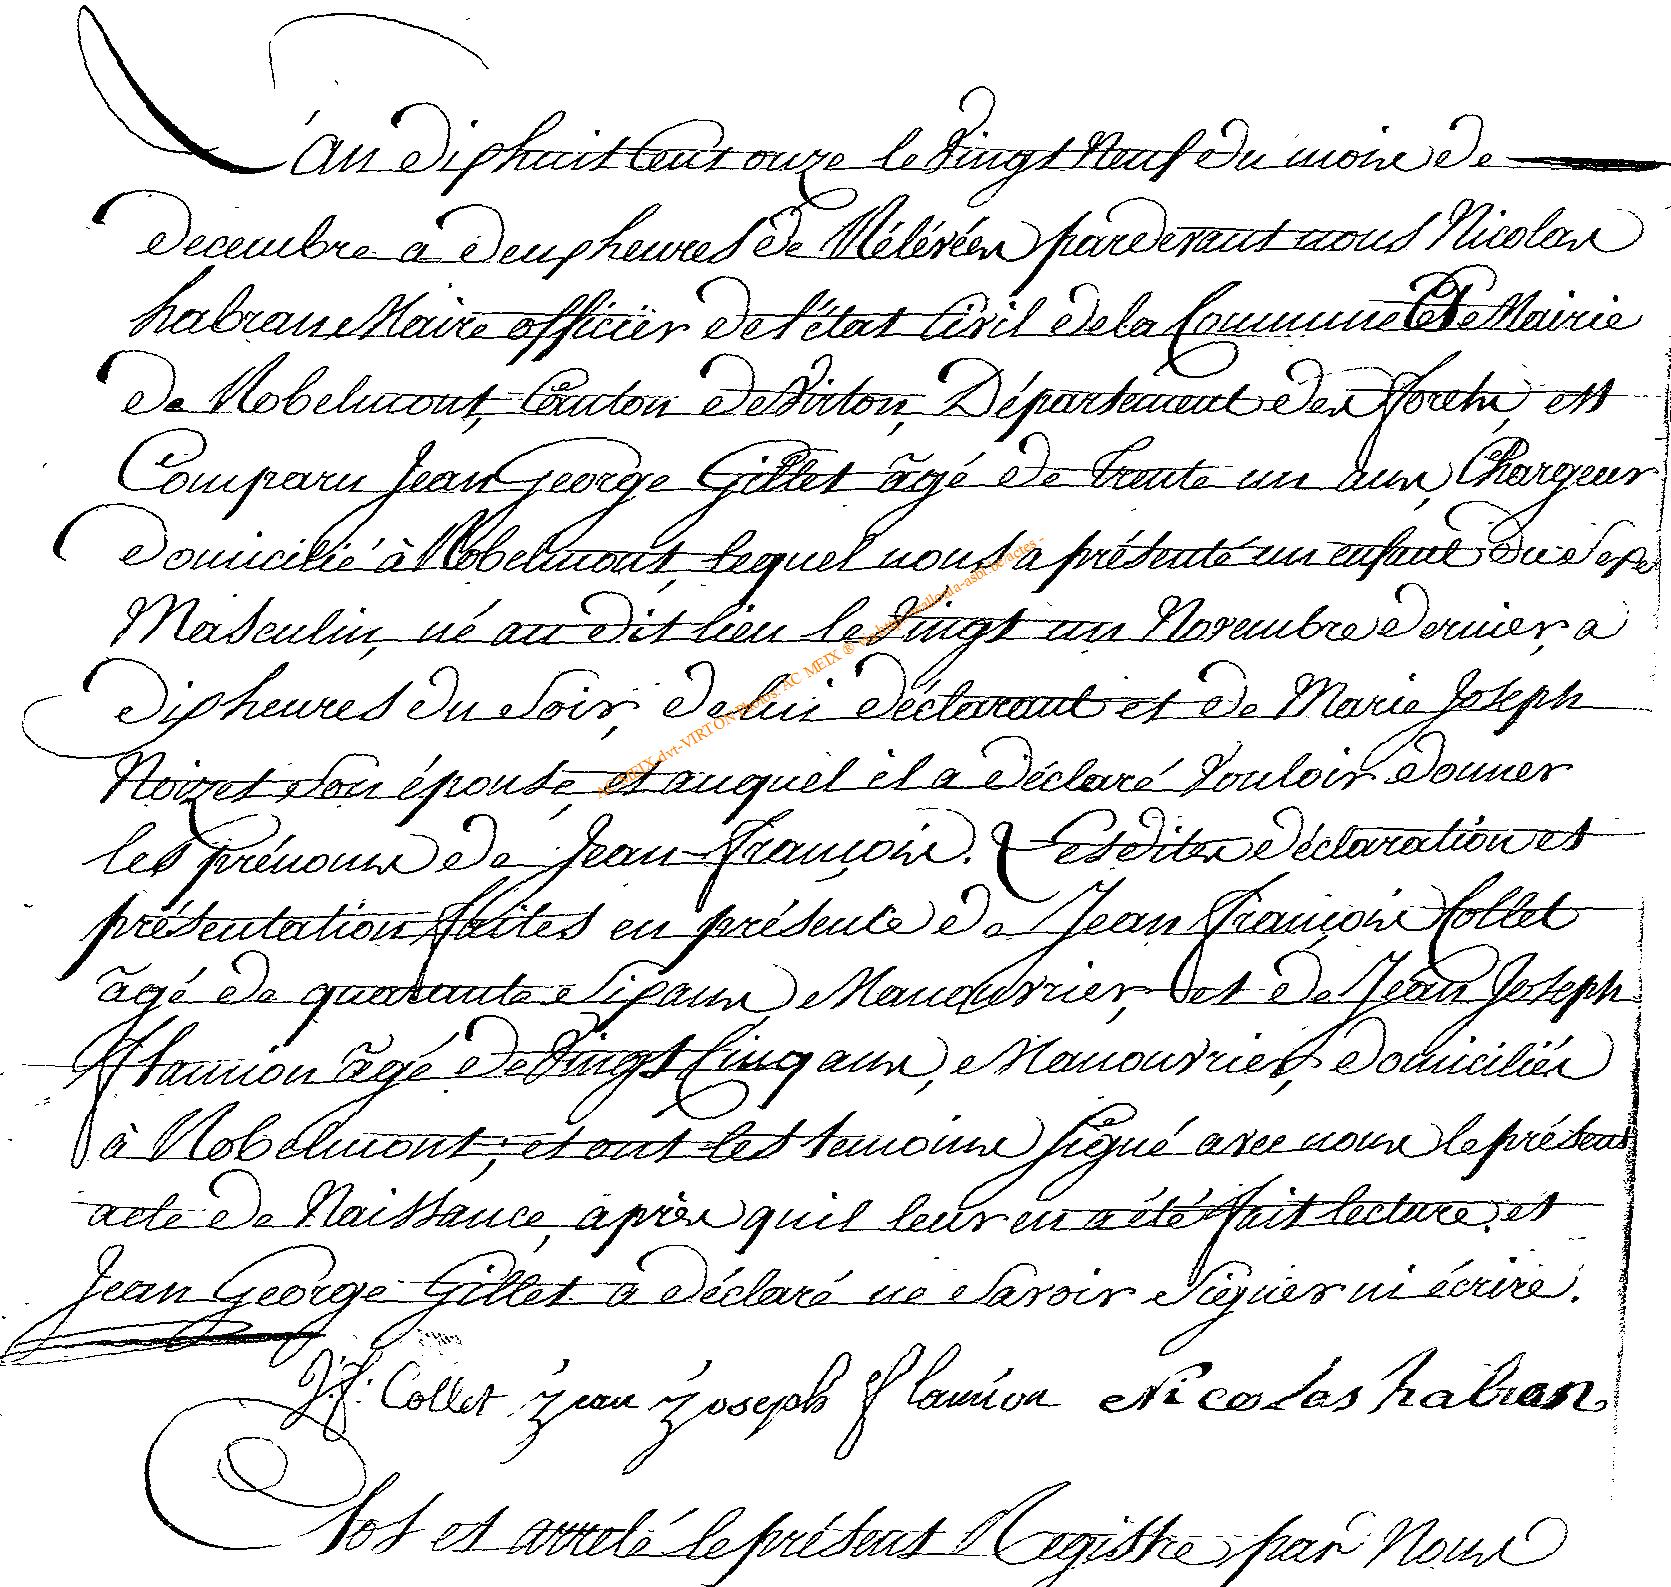 L'an dixhuit Cent onze le Vingt Neuf du mois de
decembre a deux heures de Rélévées pardevant nous Nicolas
habran Maire officier de l'état Civil de la Commune et de Mairie
de Robelmont, Canton de Virton, Département des Forêts, est
Comparu Jean George Gillet âgé de trente un ans, Chargeur
domicilié à Robelmont, lequel nous a présenté un enfant du Sexe
Masculin, né au dit lieu le Vingt un Novembre dernier, a
dix heures du Soir, de lui déclarant et de Marie Joseph
Noizet son épouse, et auquel il a déclaré Vouloir donner
les prénoms de Jean François. Lesdites déclaration et
présentation faites en présence de Jean François Collet
âgé de quarante Six ans Manouvrier, et de Jean Joseph
flamion âgé de Vingt Cinq ans, Manouvrier, domiciliés
à Robelmont; et ont les temoins signé avec nous le présent
acte de Naissance, après quil leur en a été fait lecture. et
Jean George Gillet a déclaré ne Savoir Signer ni écrire.
J. f. Collet jean joseph flamion Nicolas habran
Clos et arreté le présent Registre par Nous